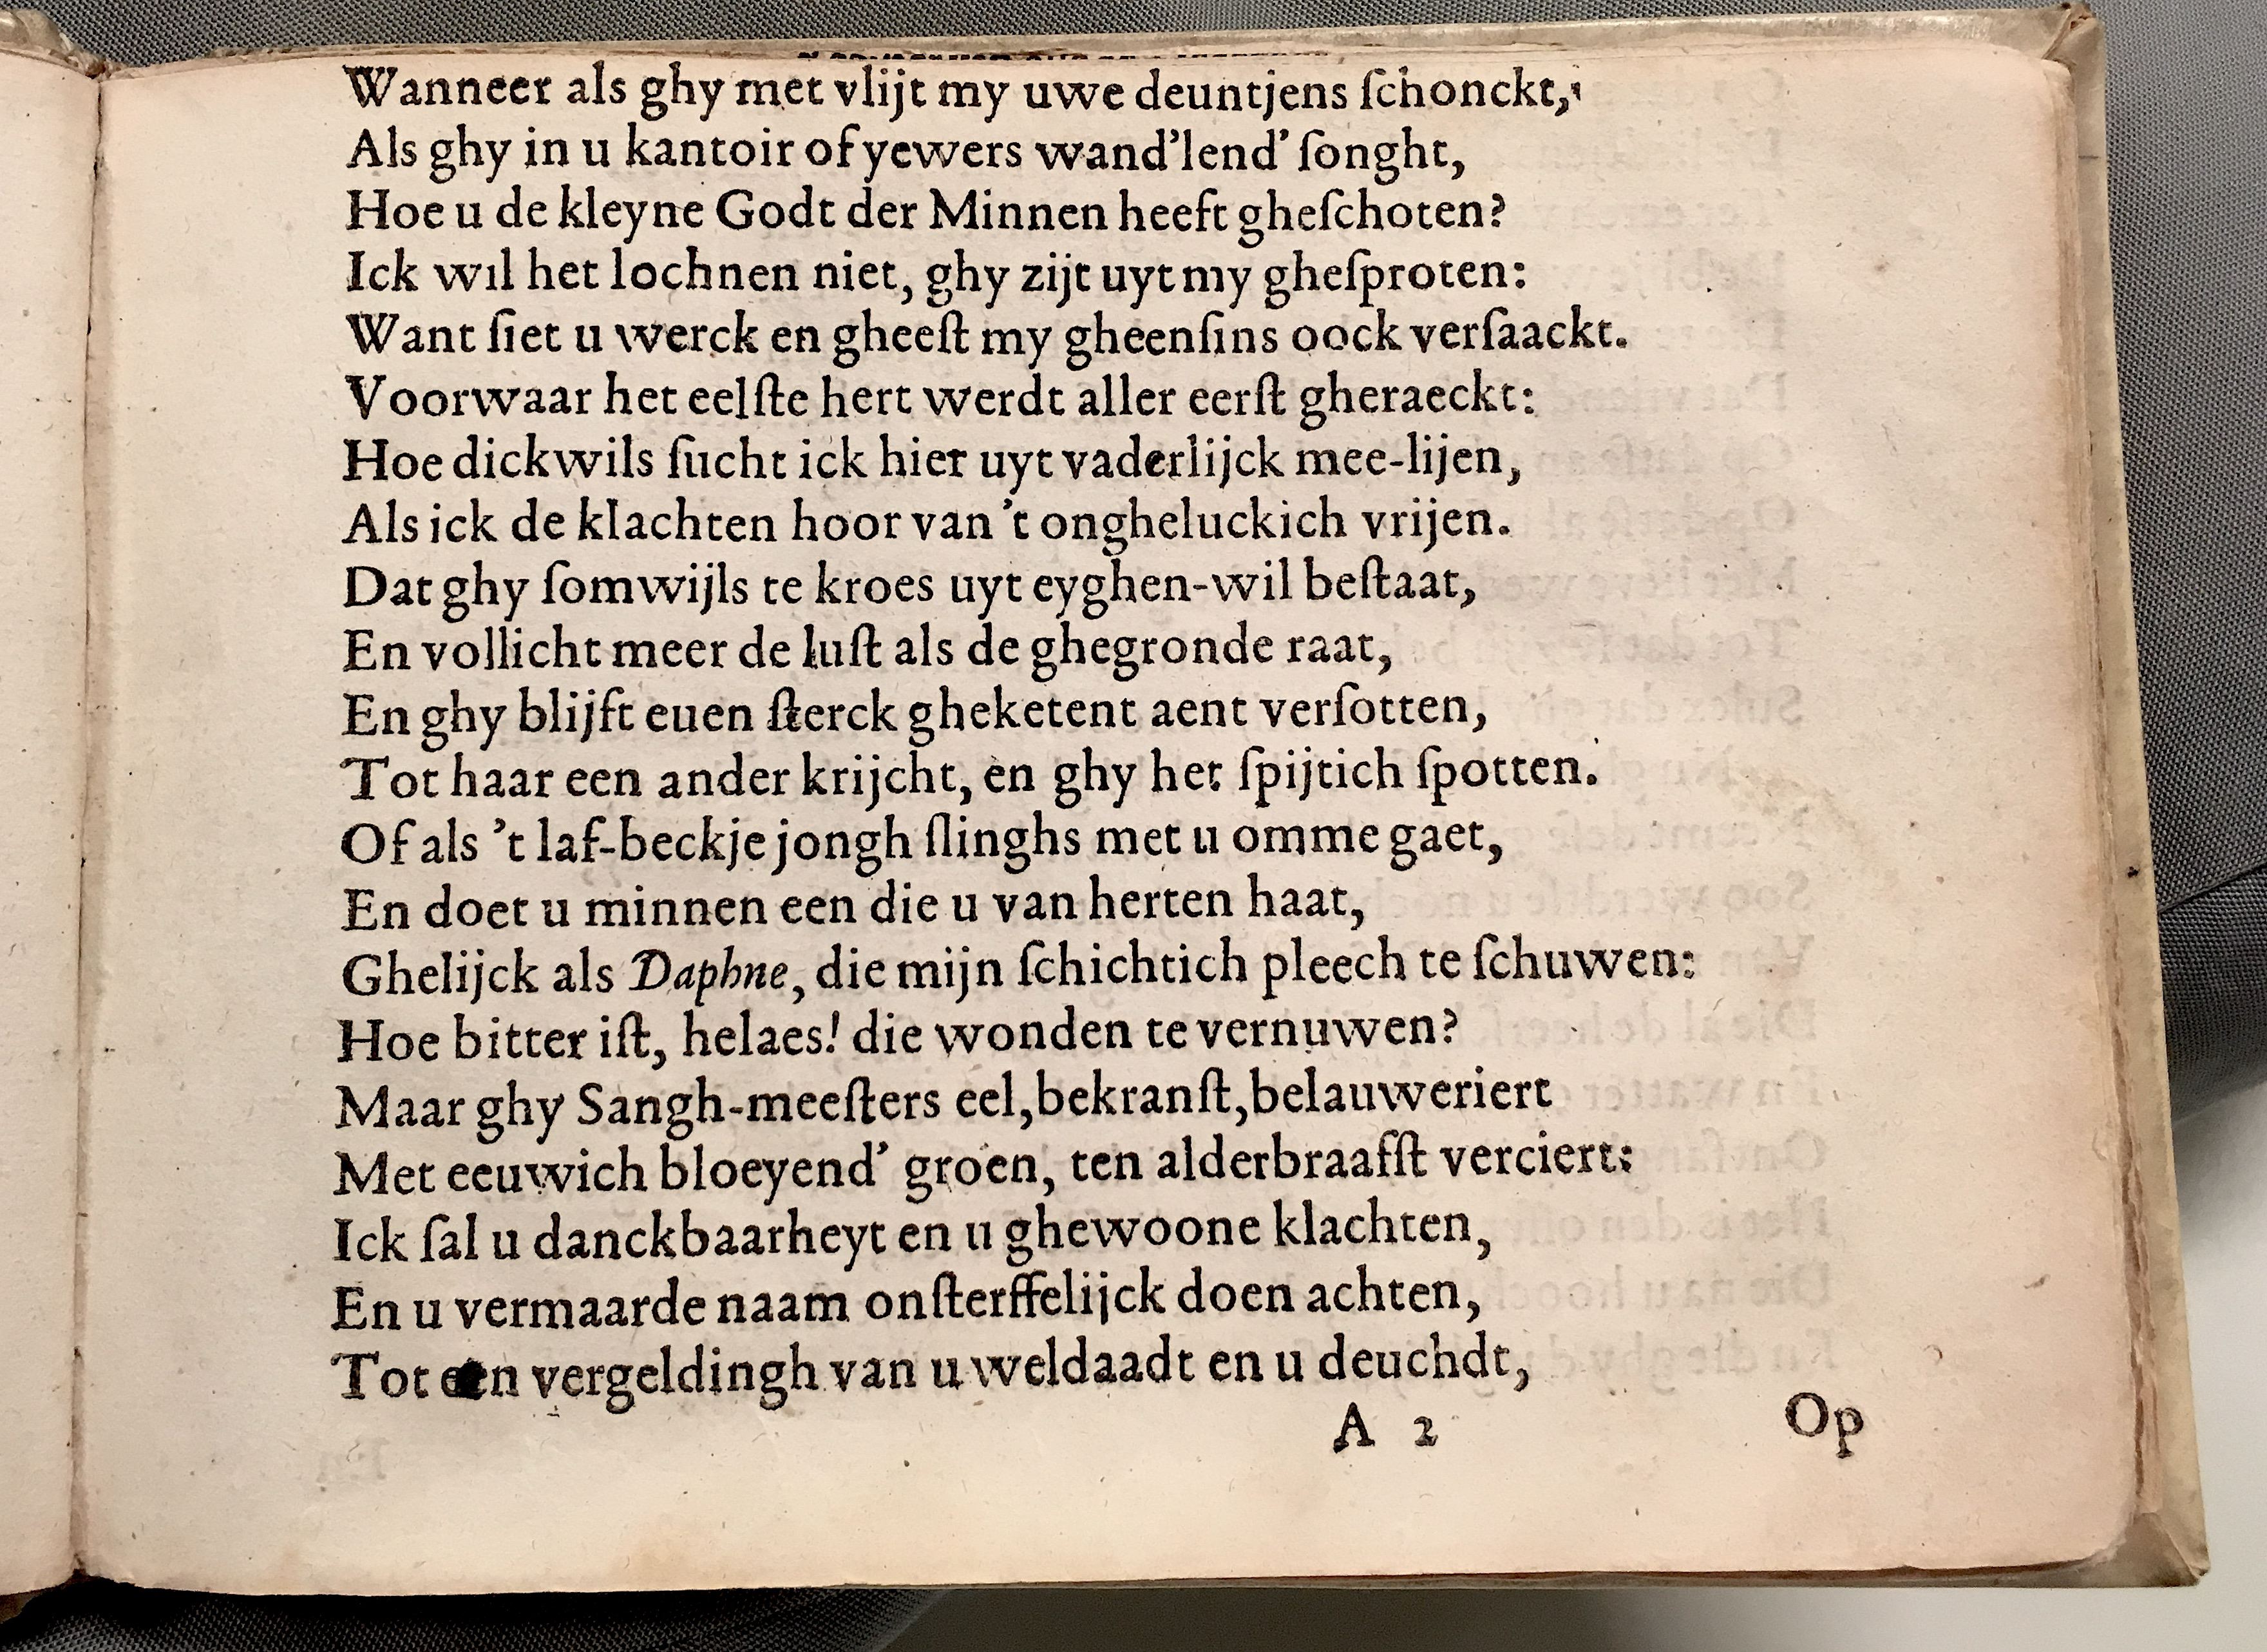 Wanneer als ghy met vlijt my uwe deuntjens ſchonckt,
Als ghy in u kantoir of yewers wand'lend' ſonght,
Hoe u de kleyne Godt der Minnen heeft gheſchoten?
Ick wil het lochnen niet, ghy zijt uyt my gheſproten:
Want ſiet u werck en gheeſt my gheenſins oock verſaackt.
Voorwaar het eelſte hert werdt aller eerſt gheraeckt:
Hoe dickwils ſucht ick hier uyt vaderlijck mee-lijen,
Als ick de klachten hoor van 't ongheluckich vrijen.
Dat ghy ſomwijls te kroes uyt eyghen-wil beſtaat,
En vollicht meer de luſt als de ghegronde raat,
En ghy blijft euen ſterck gheketent aent verſotten,
Tot haar een ander krijcht, en ghy het ſpijtich ſpotten.
Of als 't laf-beckje jongh ſlinghs met u omme gaet,
En doet u minnen een die u van herten haat,
Ghelijck als Daphne, die mijn ſchichtich pleech te ſchuwen:
Hoe bitter iſt, helaes! die wonden te vernuwen?
Maar ghy Sangh-meeſters eel, bekranſt, belauweriert
Met eeuwich bloeyend' groen, ten alderbraafſt verciert:
Ick ſal u danckbaarheyt en u ghewoone klachten,
En u vermaarde naam onſterffelijck doen achten,
Tot een vergeldingh van u weldaadt en u deuchdt,
A 2 Op